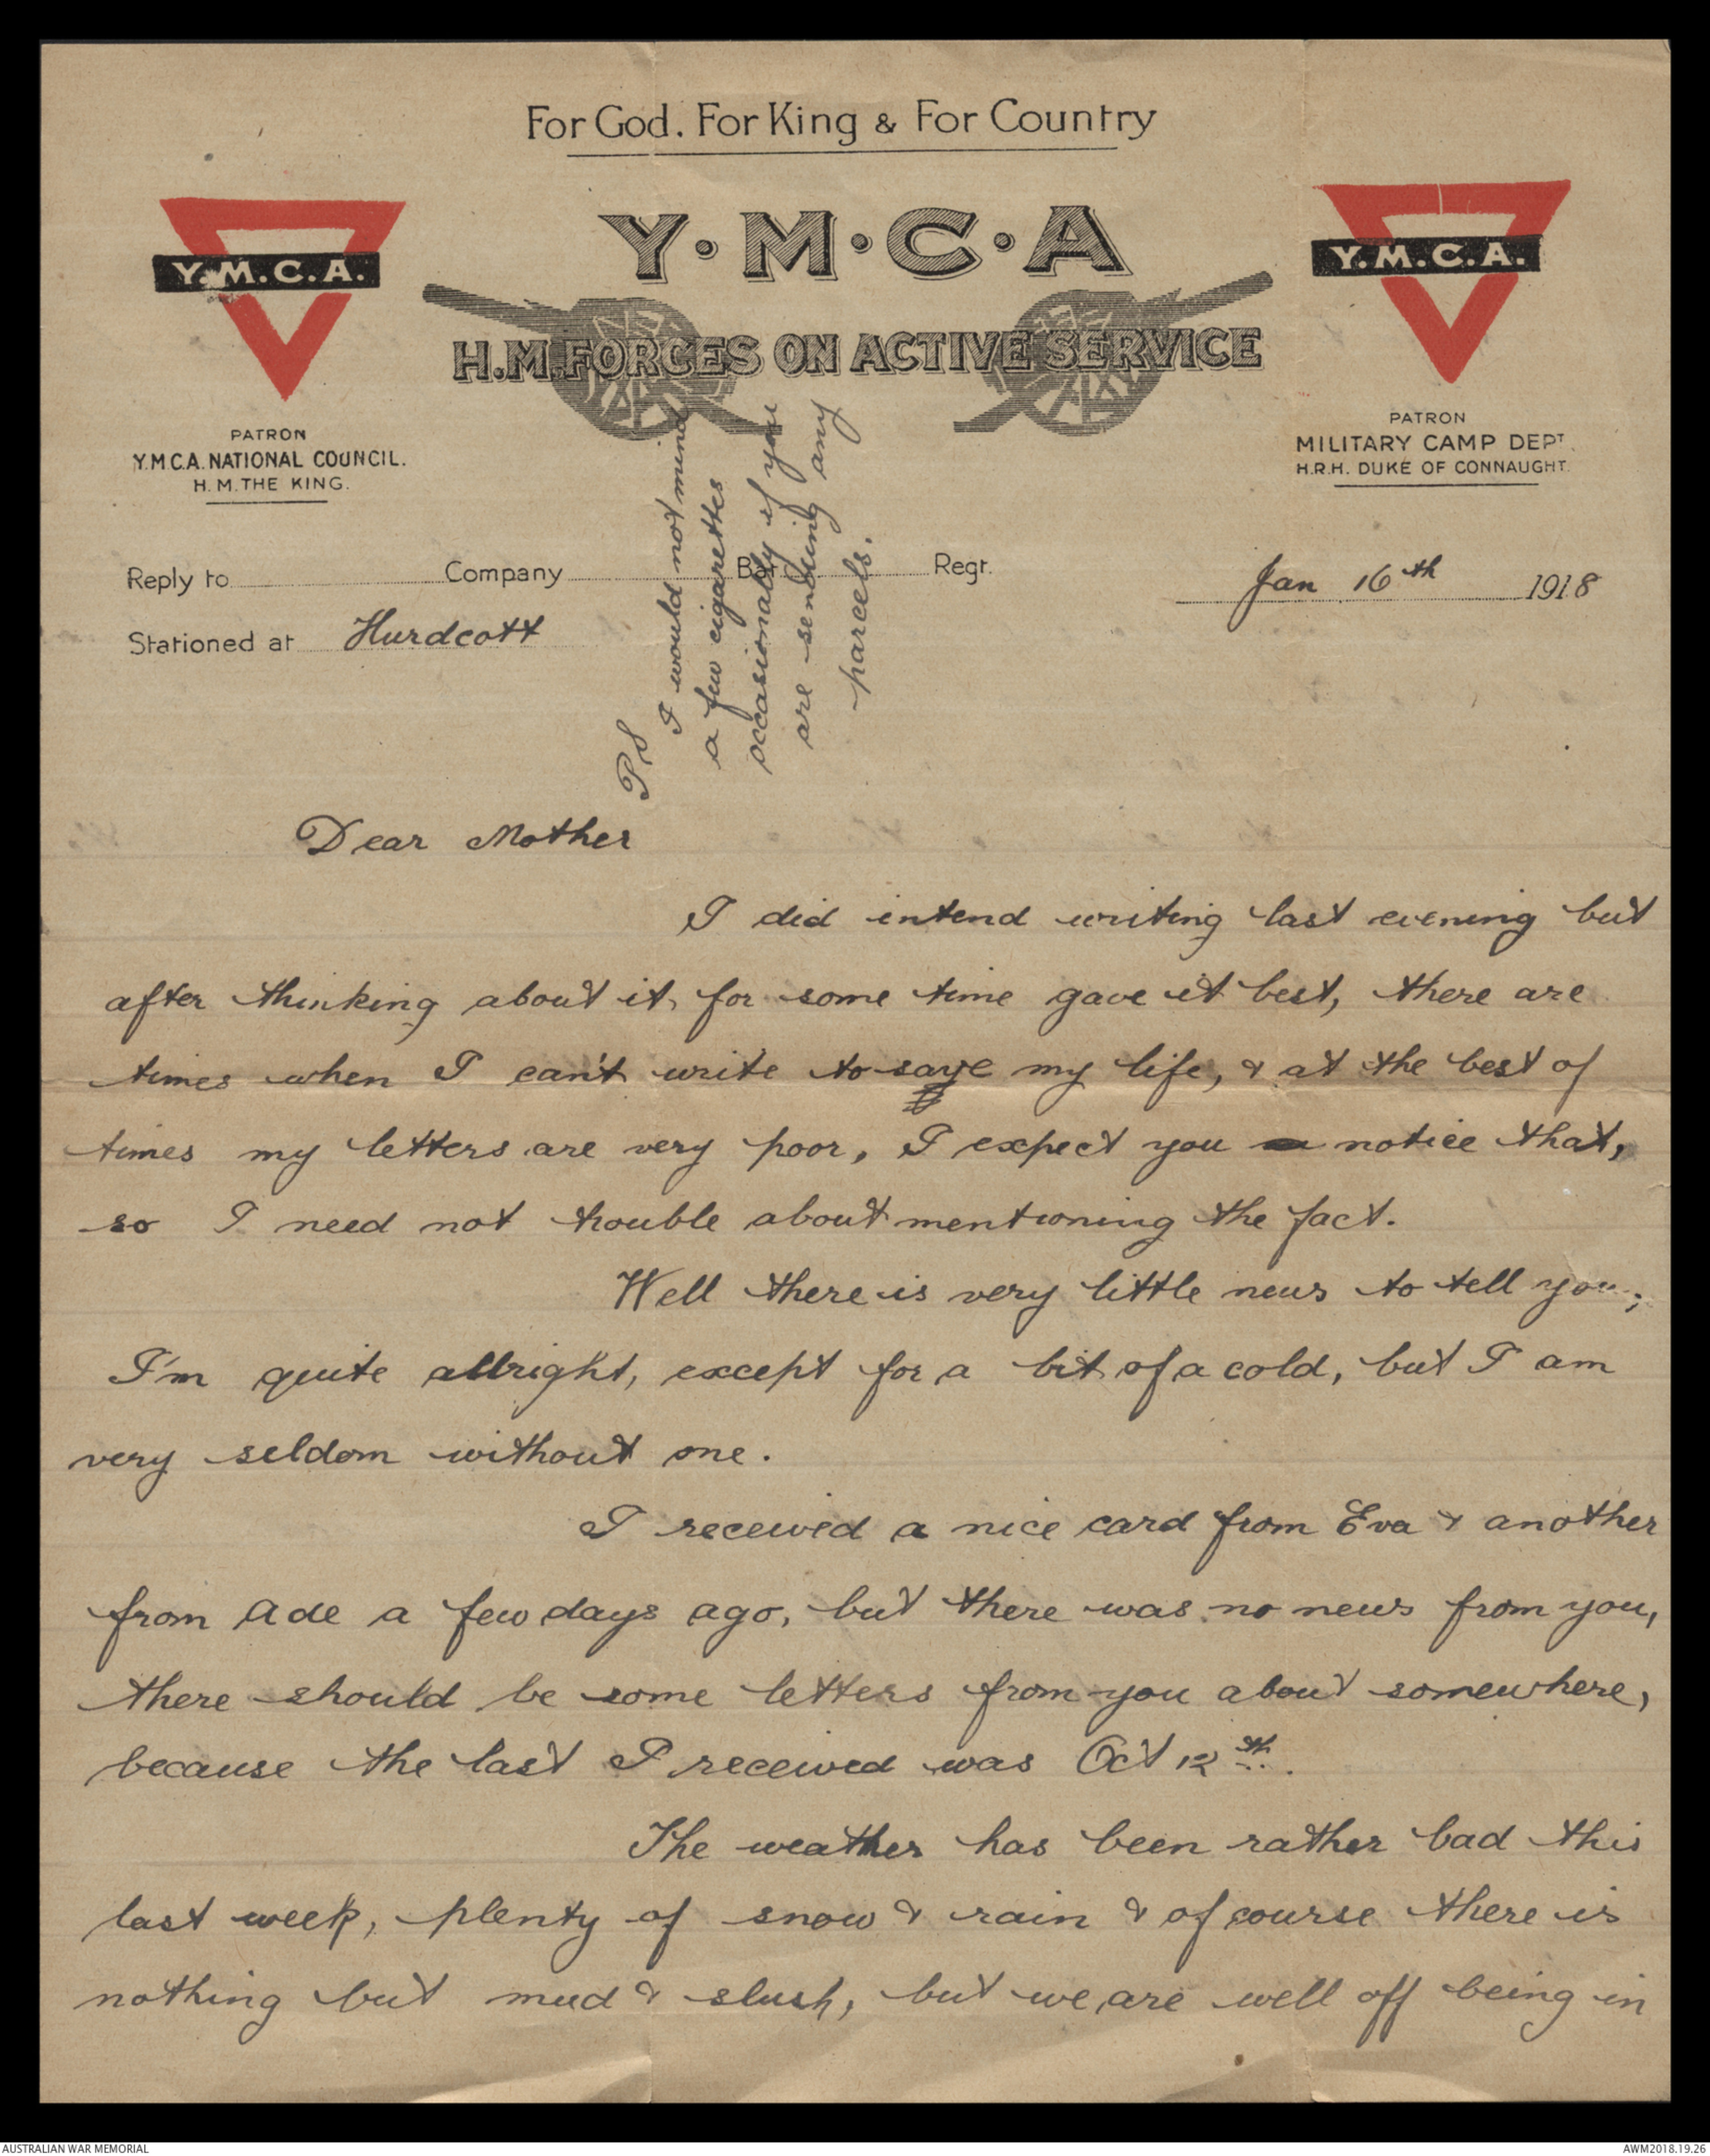 For God. For King & For Country
Y.M.C.A.
Y·M·C·A
Y.M.C.A.
H.M. FORCES ON ACTIVE SERVICE
PATRON
Y.M.C.A. NATIONAL COUNCIL.
H.M. THE KING.
PATRON
MILITARY CAMP DEPT.
H.R.H. DUKE OF CONNAUGHT.
Reply to Company Bat Regt.
Jan 16th 1918
Stationed at Hurdcott
PS
I would not mind
a few cigarettes
occasionally if you
are sending any
parcels.
Dear Mother
I did intend writing last evening but
after thinking about it, for some time gave it best, there are
times when I can't write to save my life, & at the best of
times my letters are very poor, I expect you notice that,
so I need not trouble about mentioning the fact.
Well there is very little news to tell you,
I'm quite allright, except for a bit of a cold, but I am
very seldom without one.
I received a nice card from Eva & another
from Ade a few days ago, but there was no news from you,
there should be some letters from you about somewhere,
because the last I received was Oct 12th.
The weather has been rather bad this
last week, plenty of snow & rain & of course there is
nothing but mud & slush, but we are well off being in
AUSTRALIAN WAR MEMORIAL
AWM2018.19.26